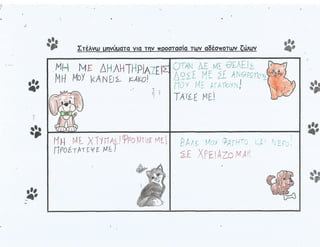 Στέλνω μηνύματα για την προστασία των αδέσποτων ζώων
ΜΗ ΜΕ ΔΗΛΗΤΗΡΙΑΖΕΙΣ
ΜΗ ΜΟΥ ΚΑΝΕΙΣ ΚΑΚΟ!
ΟΤΑΝ ΔΕ ΜΕ ΘΕΛΕΙΣ
ΔΩΣΕ ΜΕ ΣΕ ΑΝΘΡΩΠΟΥΣ
ΠΟΥ ΜΕ ΑΓΑΠΟΥΝ!
ΤΑΙΣΕ ΜΕ!
ΜΗ ΜΕ ΧΤΥΠΑΣ! ΦΡΟΝΤΙΣΕ ΜΕ!
ΠΡΟΣΤΑΤΕΨΕ ΜΕ!
ΒΑΛΕ ΜΟΥ ΦΑΓΗΤΟ ΚΑΙ ΝΕΡΟ!
ΣΕ ΧΡΕΙΑΖΟΜΑΙ!